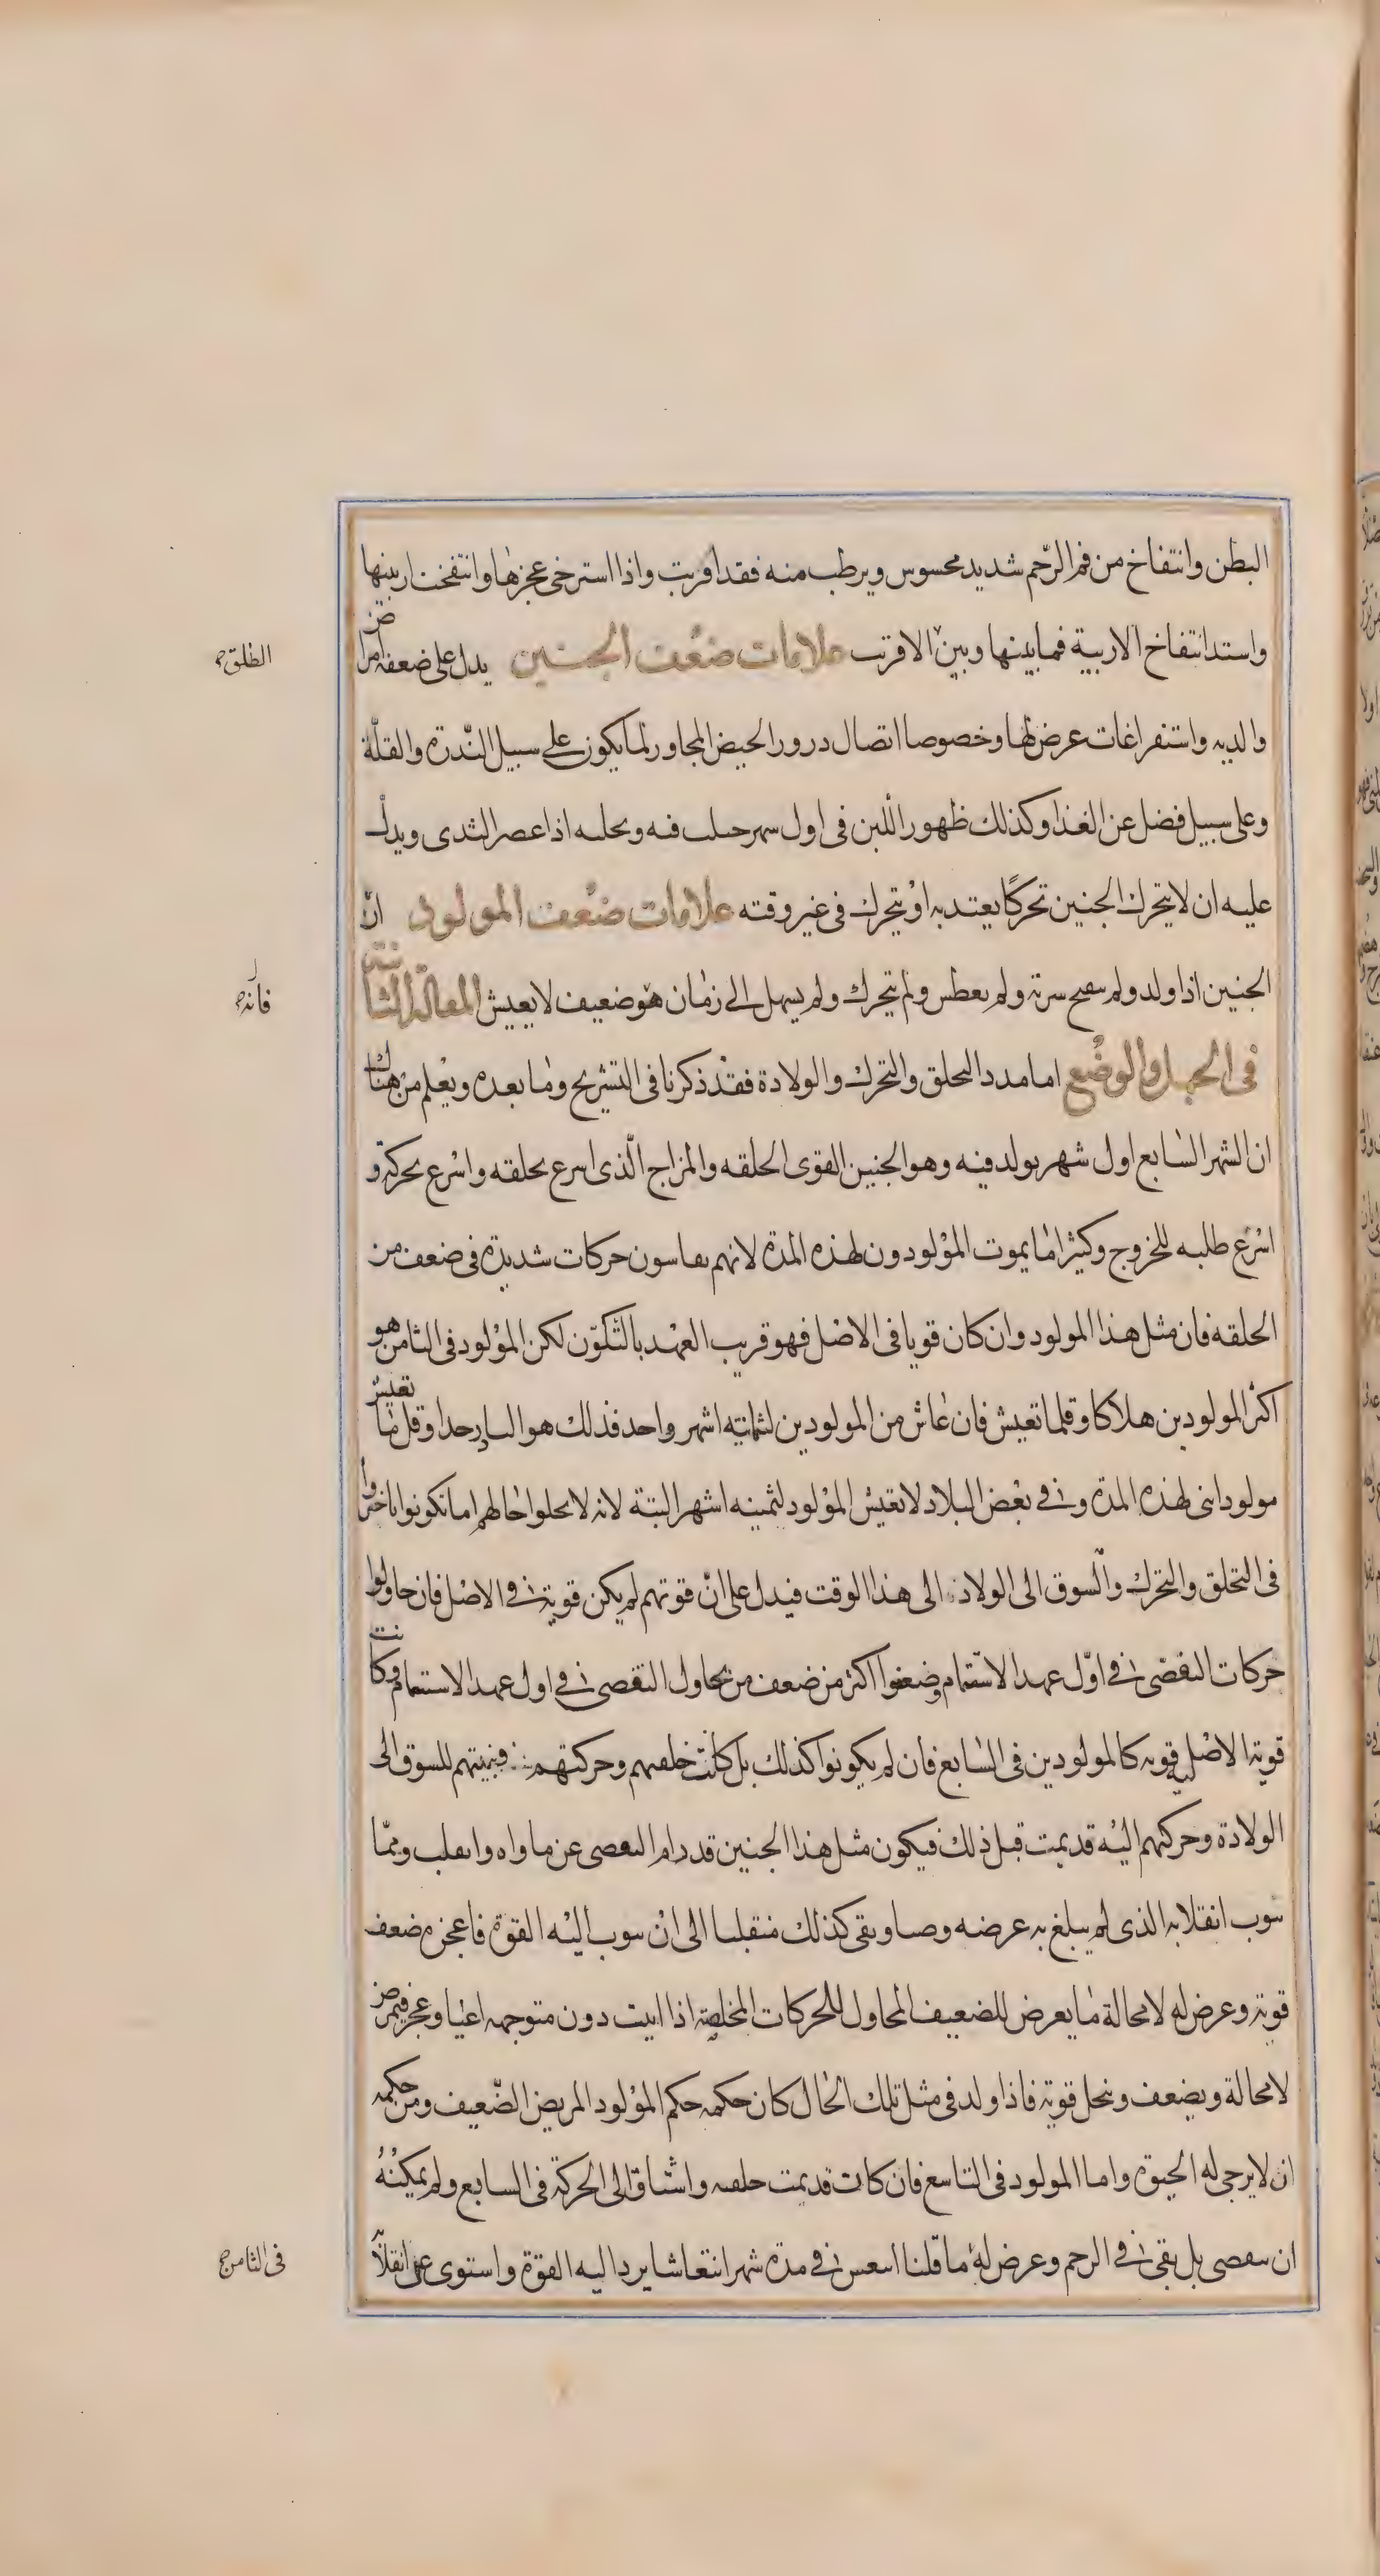 البطن وانتفاخ من فم الرّحم شديد محسوس ويرطب منه فقد اقربت واذا استرخى عجزها وانتفخت اربيتها
واستد انتفاخ الاربية فما بينها وبين الاقرتب علامات ضعف الجنين يدل على ضعفه امراض
الطلق
والديه واستفراغات عرض لها وخصوصا اتصال درور الحيض المجاور لما يكون على سبيل النّدرة والقلّة
وعلى سبيل فضل عن الغذا وكذلك ظهور اللبن فى اول سهر حبلت فيه وتحلبه اذا عصر الثدى ويدل
عليه ان لا يتحرك الجنين تحركًا يعتد به او يتحرك فى غير وقته علامات ضعف المولود انّ
الجنين اذا ولد ولم سفح سرته ولم يعطس ولم يتحرك ولم يسهل الى زمان هو ضعيف لا يعيش المقالة الثانية
فانه
فى الحمل والوضع اما مدد التحلق والتحرك والولادة فقد ذكرنا فى التشريح وما بعده ويعلم من هناك
ان الشهر السابع اول شهر يولد فيه وهو الجنين القوى الحلقه والمزاج الّذى اسرع تحلقه واسرع تحركه و
اسرع طلبه للخروج وكثيرا ما يموت المولودون لهذه المدة لانهم يقاسون حركات شديدة فى ضعف من
الحلقه فان مثل هذا المولود وان كان قويا فى الاصل فهو قريب العهد بالتّكوّن لكن المولود فى الثامن هو
اكثر المولودين هلاكا وقلما تعيش فان عاش من المولودين لثمانيه اشهر واحد فذلك هو النادر جدا وقل ما تعيش
مولود انثى لهذه المدة وفى بعض البلاد لا تعيش المولود لثمينه اشهر البتة لانه لا يحلوا حالهم اما تكونوا تاخروا
فى التخلق والتحرك والسوق الى الولادة الى هذا الوقت فيدل على انّ قوتهم لم يكن قوية فى الاصل فان حاولوا
حركات التقصّى فى اوّل عهد الاستتمام وضعفوا اكثر من ضعف من يحاول التقصى فى اول عهد الاستتمام وكانت
قوية الاصل قويه كالمولودين فى السابع فان لم يكونوا كذلك بل كانت خلقتهم وحركتهم وتنبيتهم للسوق الى
الولادة وحركتهم اليه قد تمت قبل ذلك فيكون مثل هذا الجنين قد رام التقصى عن ماواه وانقلب وتمّا
سوب انقلابه الذى لم يبلغ به عرضه وصا وبقى كذلك منقلبا الى ان سوب اليه القوة فاعجزه ضعف
قوته وعرض له لا محالة ما يعرض للضعيف المحاول للحركات المخلصة اذا ابيت دون متوجهه اعيا وعجز فيمرض
لا محالة ويضعف وينحل قوته فاذا ولد فى مثل تلك الحال كان حكمه حكم المولود المريض الضّعيف ومن حكمه
ان لا يرجى له الحيوة واما المولود فى التاسع فان كانت قد تمت حلقته واشتاق الى الحركة فى السابع ولم يمكنه
ان سقصى بل بقى فى الرحم وعرض له ما قلنا انتعس فى مدة شهر انتعاشا يرد اليه القوة واستوى عن انقلاب
فى الثامن